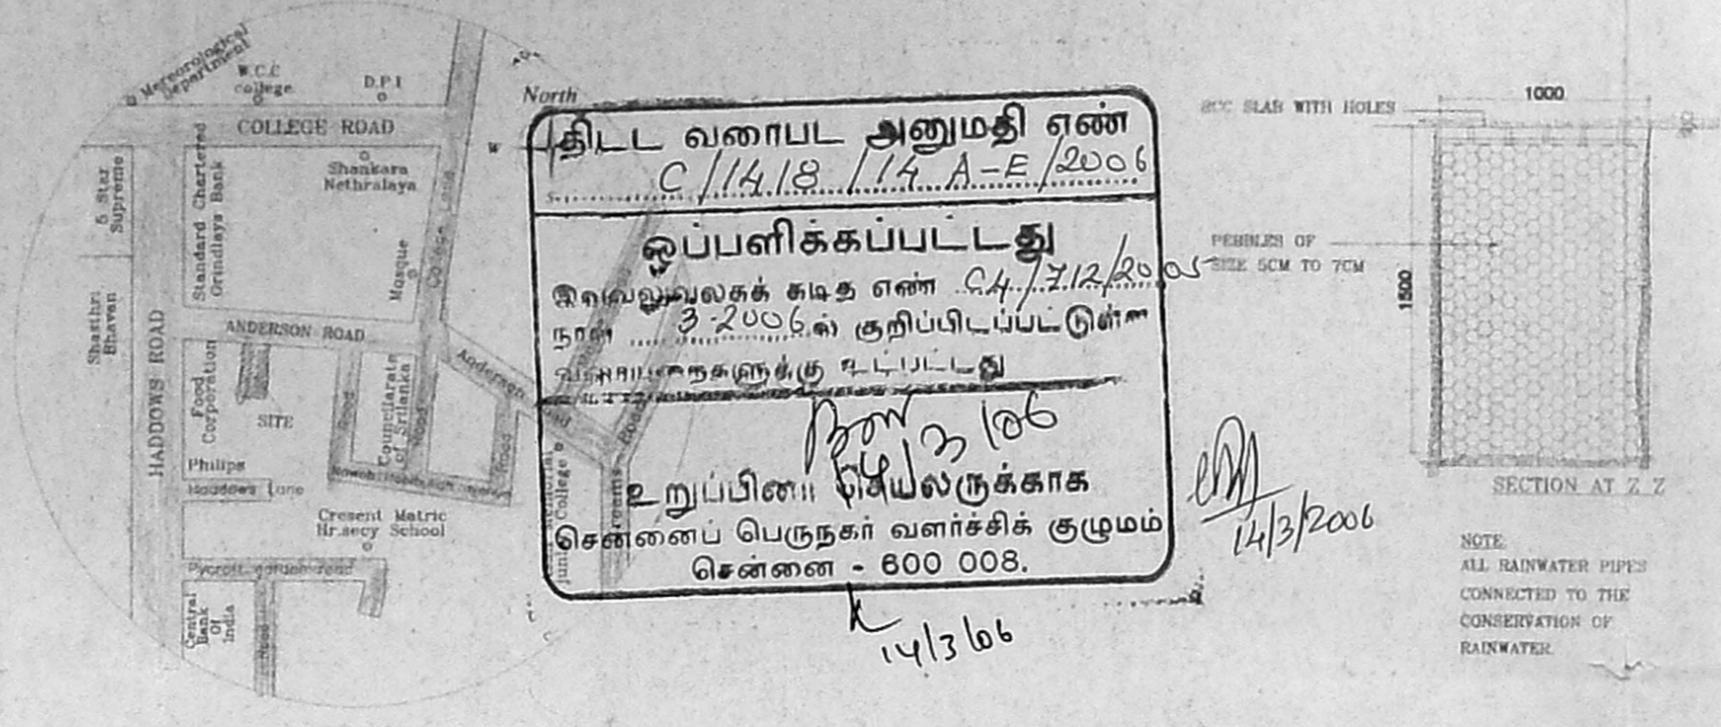 Mereorological
Department
W.C.C
college
D.P.I
COLLEGE ROAD
5 Star
Supreme
Standard Chartered
Grindlays Bank
Shankara
Nethralaya
Mosque
College Lane
Shasthri
Bhavan
HADDOWS ROAD
ANDERSON ROAD
Anderson Road
Food
Corporation
SITE
Road
Councilarate
of Srilanka
Road
Road
Road
Philips
Haddows Lane
Cresent Matric
Hr.secy School
Pycroft garden road
Central
Bank
Of
India
Road
College
North
W
திட்ட வரைபட அனுமதி எண்
C/1418/14 A-E/2006
ஒப்பளிக்கப்பட்டது
இவ்வலுவலகக் கடித எண் C4/712/2005
நாள் 3-2006ல் குறிப்பிடப்பட்டுள்ள
வரையறைகளுக்கு உட்பட்டது
14/3/06
உறுப்பினர் செயலருக்காக
சென்னைப் பெருநகர் வளர்ச்சிக் குழுமம்
சென்னை - 600 008.
14/3/06
14/3/2006
1000
RCC SLAB WITH HOLES
PEBBLES OF
SIZE 5CM TO 7CM
1500
SECTION AT Z Z
NOTE:
ALL RAINWATER PIPES
CONNECTED TO THE
CONSERVATION OF
RAINWATER.